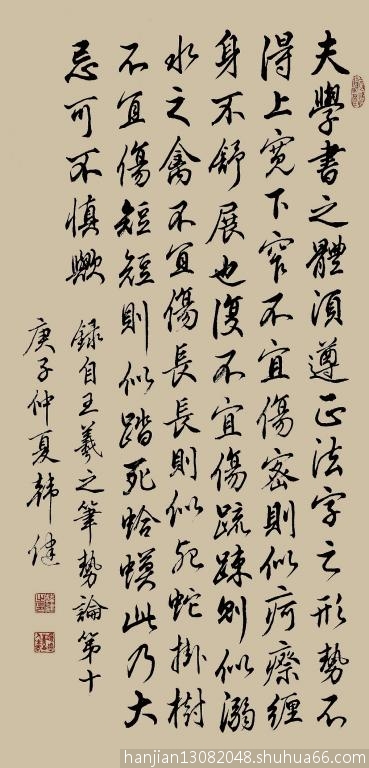 夫學書之體須遵正法字之形勢不
得上寬下窄不宜傷密則似疴瘵纏
身不舒展也復不宜傷疏疎則似溺
水之禽不宜傷長長則似死蛇掛樹
不宜傷短短則似踏死蛤蟆此乃大
忌可不慎歟
錄自王羲之筆勢論第十
庚子仲夏韓健
hanjian13082048.shuhua66.com